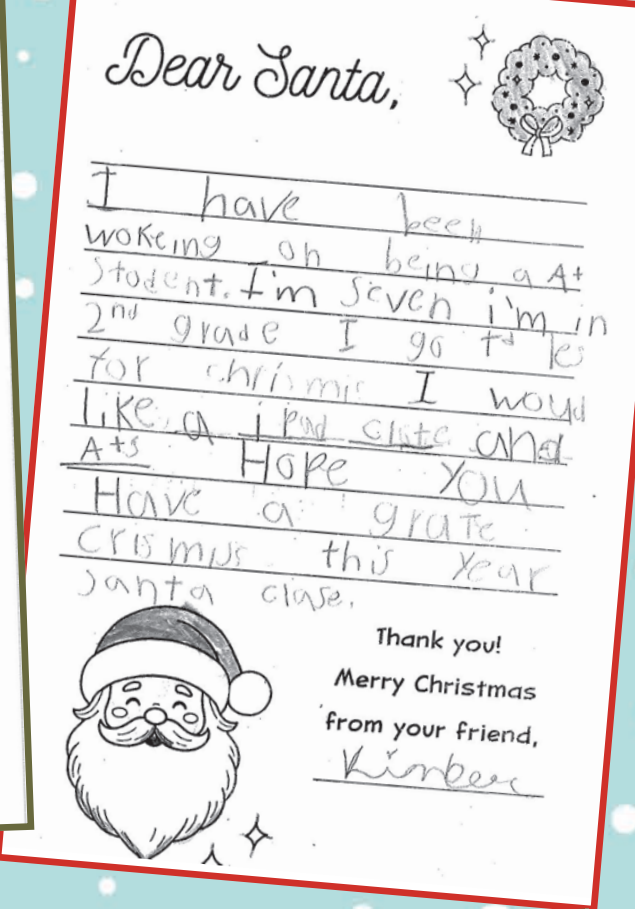 Dear Santa,
I have been
wokeing on being a A+
Student. I'm Seven i'm in
2nd grade I go to les
for chrismis I woud
like a ipad clate and
A+s Hope You
Have a grate
crismus this year
santa clase.
Thank you!
Merry Christmas
from your friend,
Kimber